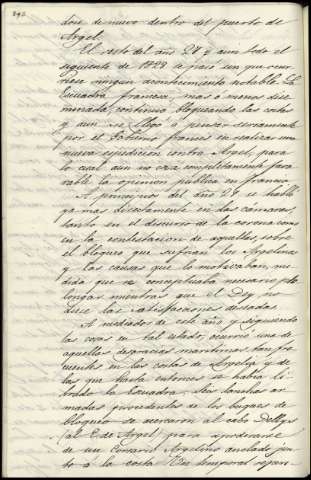 dose de nuevo dentro del puerto de
Argel.
El resto del año 27 y aun todo el
siguiente de 1828 se pasó sin que ocur
riese ningun acontecimiento notable. La
Escuadra francesa, mas ó menos dise
minada, continuó bloqueando las costas
y aun se llegó á pensar seriamente
por el Gobierno frances en realizar una
nueva espedicion contra Argel, para
lo cual aun no era completamente favo
rable la opinion publica en francia.
A principios del año 29 se habló
ya mas directamente en las cámaras,
tanto en el discurso de la corona como
en la contestacion de aquellas sobre
el bloqueo que sufrian los Argelinos
y las causas que lo motivaban, me
dida que se conceptuaba necesario pro
longar mientras que el Dey no
diese las satisfacciones deseadas.
A mediados de este año y siguiendo
las cosas en tal estado, ocurrió una de
aquellas desgracias maritimas tan fre
cuentes en las costas de Argelia y de
las que hasta entonces se habia li
brado la Escuadra. Seis lanchas ar
madas procedentes de los buques de
bloqueo se acercaron al cabo Dellys
(al E. de Argel) para apoderarse
de un Corsario Argelino anclado jun
to á la costa. Un temporal repen-